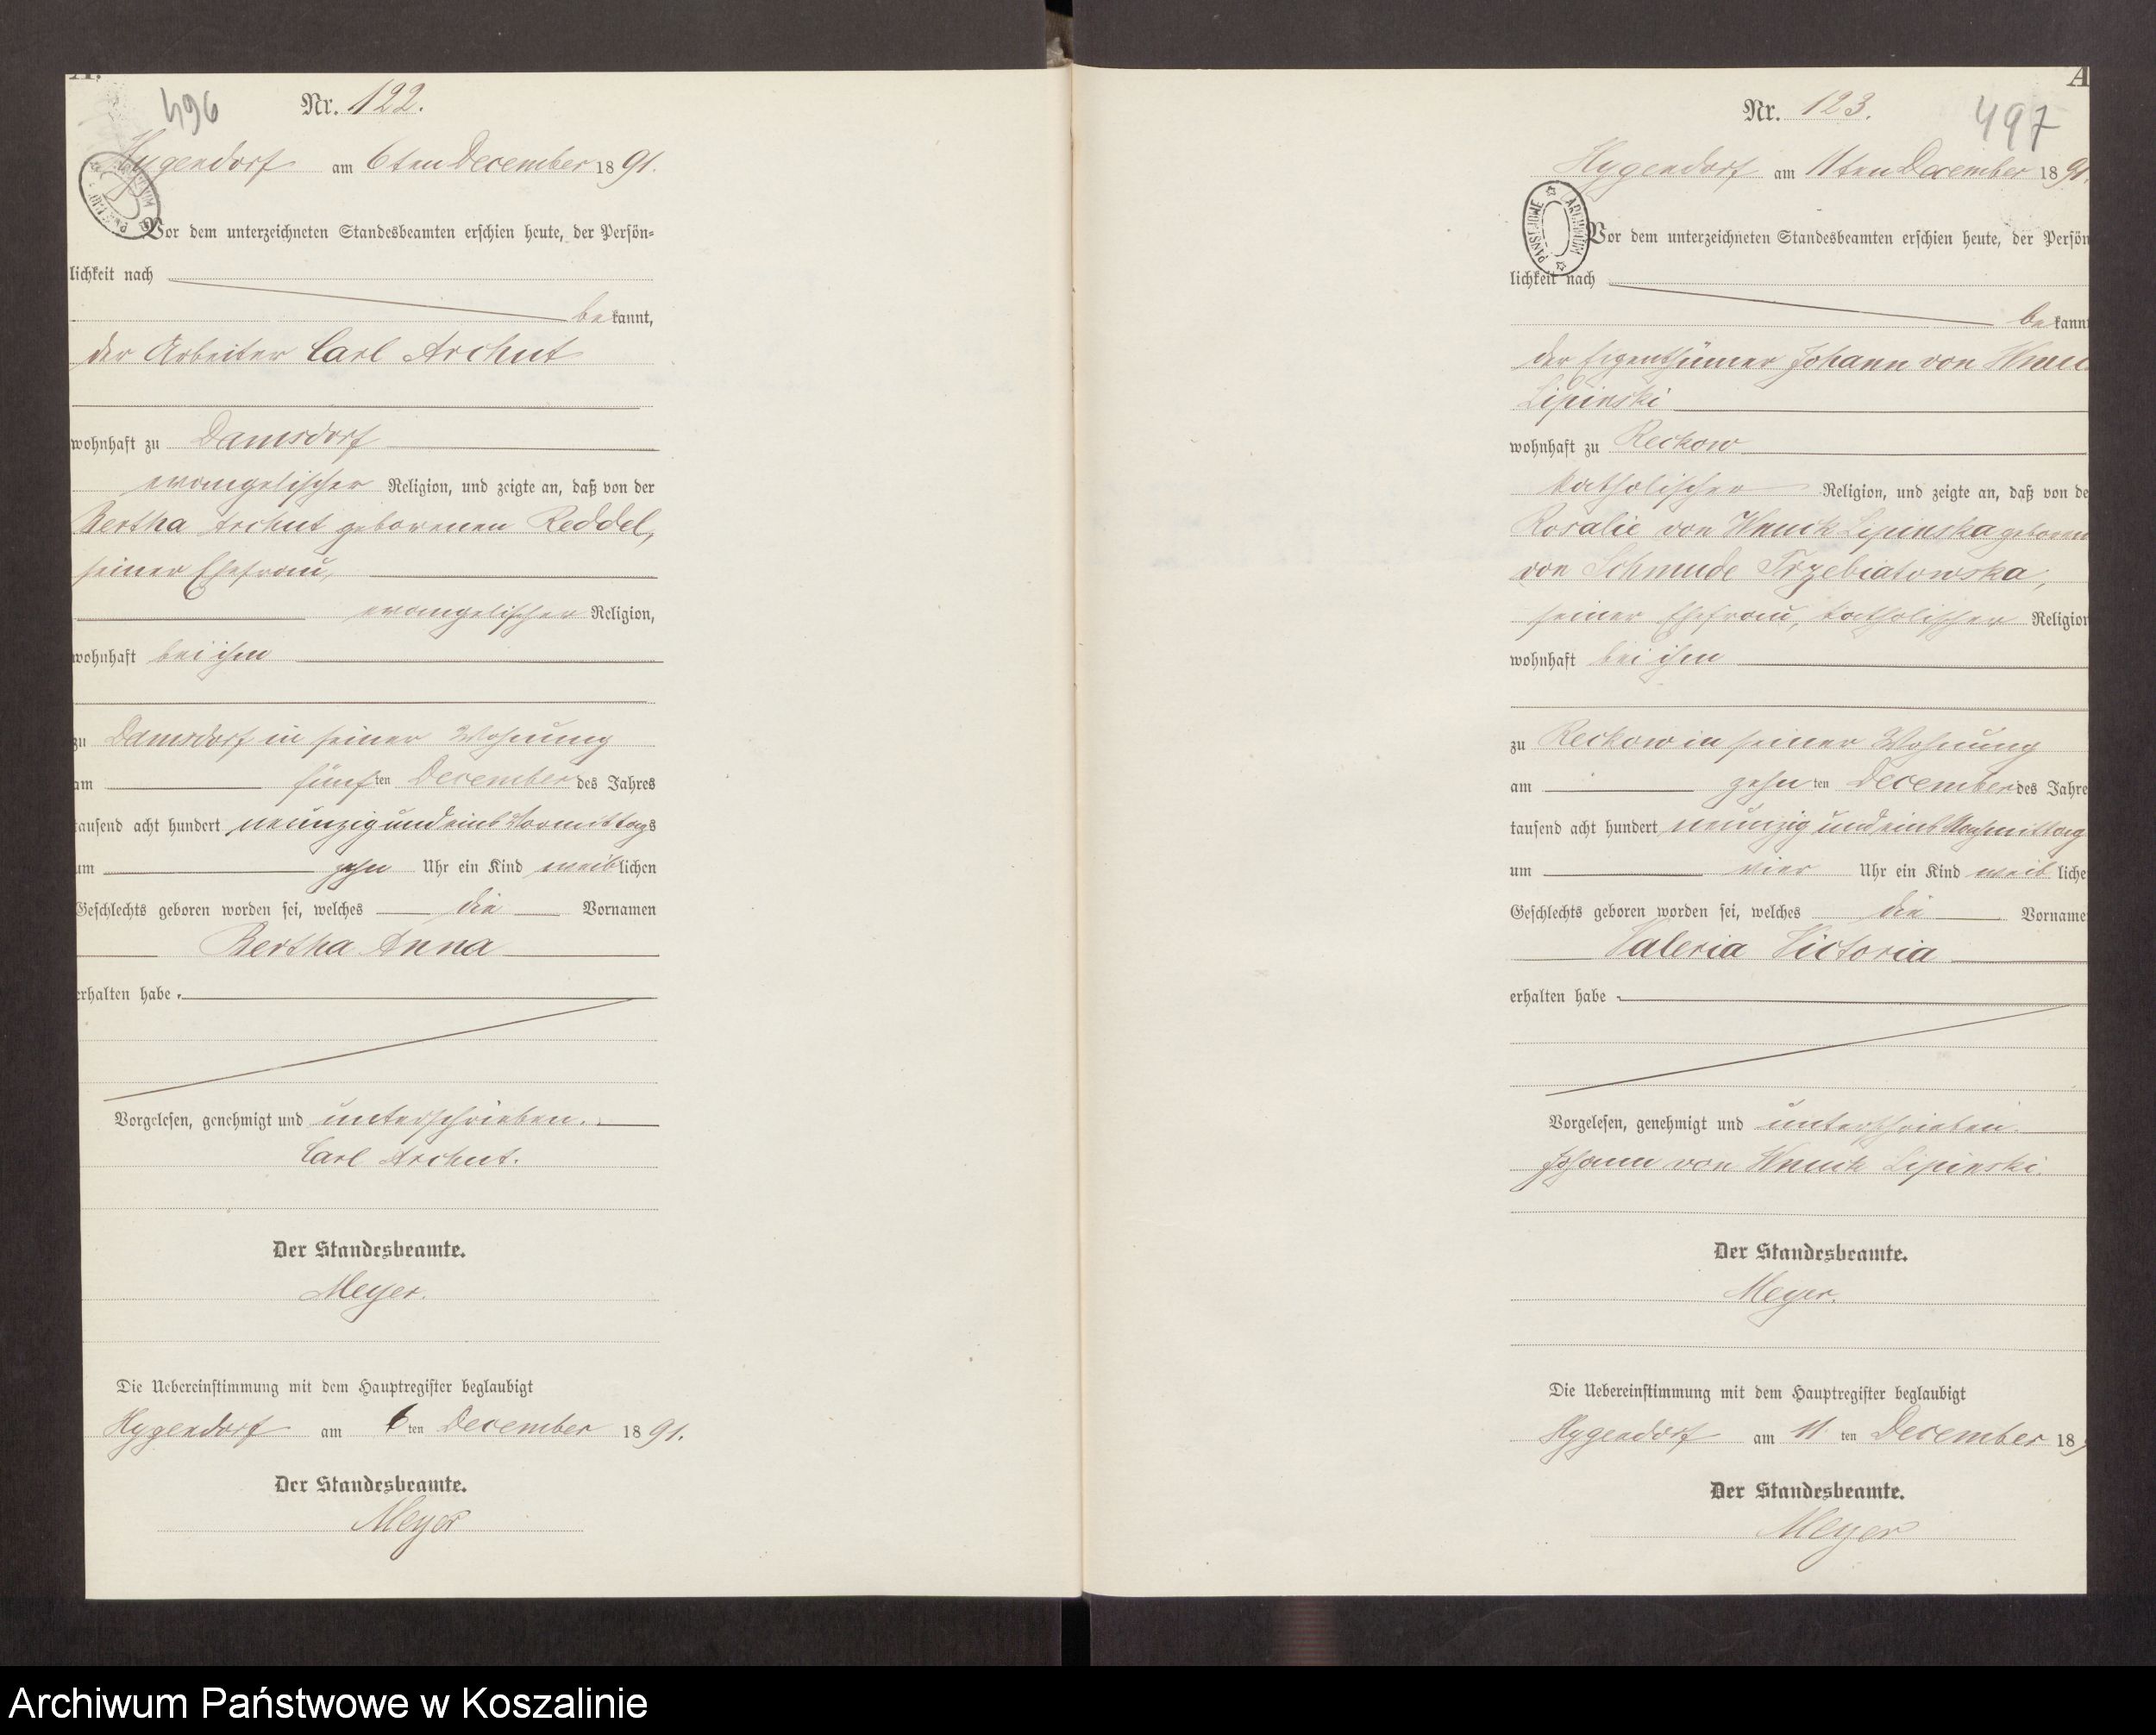 A.
496
Nr. 122.
Hygendorf am 6ten December 1891.
Vor dem unterzeichneten Standesbeamten erschien heute, der Persön-
lichkeit nach
bekannt,
der Arbeiter Carl Archut
wohnhaft zu Damsdorf
evangelischer Religion, und zeigte an, daß von der
Bertha Archut geborenen Reddel,
seiner Ehefrau,
evangelischer Religion,
wohnhaft bei ihm
zu Damsdorf in seiner Wohnung
am fünften December des Jahres
tausend acht hundert neunzig und eins Vormittags
um zehn Uhr ein Kind weiblichen
Geschlechts geboren worden sei, welches die Vornamen
Bertha Anna
erhalten habe.
Vorgelesen, genehmigt und unterschrieben.
Carl Archut.
Der Standesbeamte.
Meyer.
Die Uebereinstimmung mit dem Hauptregister beglaubigt
Hygendorf am 6ten December 1891.
Der Standesbeamte.
Meyer
A
497
Nr. 123.
Hygendorf am 11ten December 1891.
ARCHIWUM PAŃSTWOWE
Vor dem unterzeichneten Standesbeamten erschien heute, der Persön
lichkeit nach
bekannt
der Eigenthümer Johann von Wnuck
Lipinski
wohnhaft zu Reckow
katholischer Religion, und zeigte an, daß von de
Rosalie von Wnuck Lipinska geboren
von Schmude Trzebiatowska,
seiner Ehefrau, katholischer Religion
wohnhaft bei ihm
zu Reckow in seiner Wohnung
am zehnten December des Jahre
tausend acht hundert neunzig und eins Nachmittag
um vier Uhr ein Kind weibliche
Geschlechts geboren worden sei, welches die Vorname
Valeria Victoria
erhalten habe
Vorgelesen, genehmigt und unterschrieben.
Johann von Wnuck Lipinski.
Der Standesbeamte.
Meyer.
Die Uebereinstimmung mit dem Hauptregister beglaubigt
Hygendorf am 11ten December 189
Der Standesbeamte.
Meyer
Archiwum Państwowe w Koszalinie